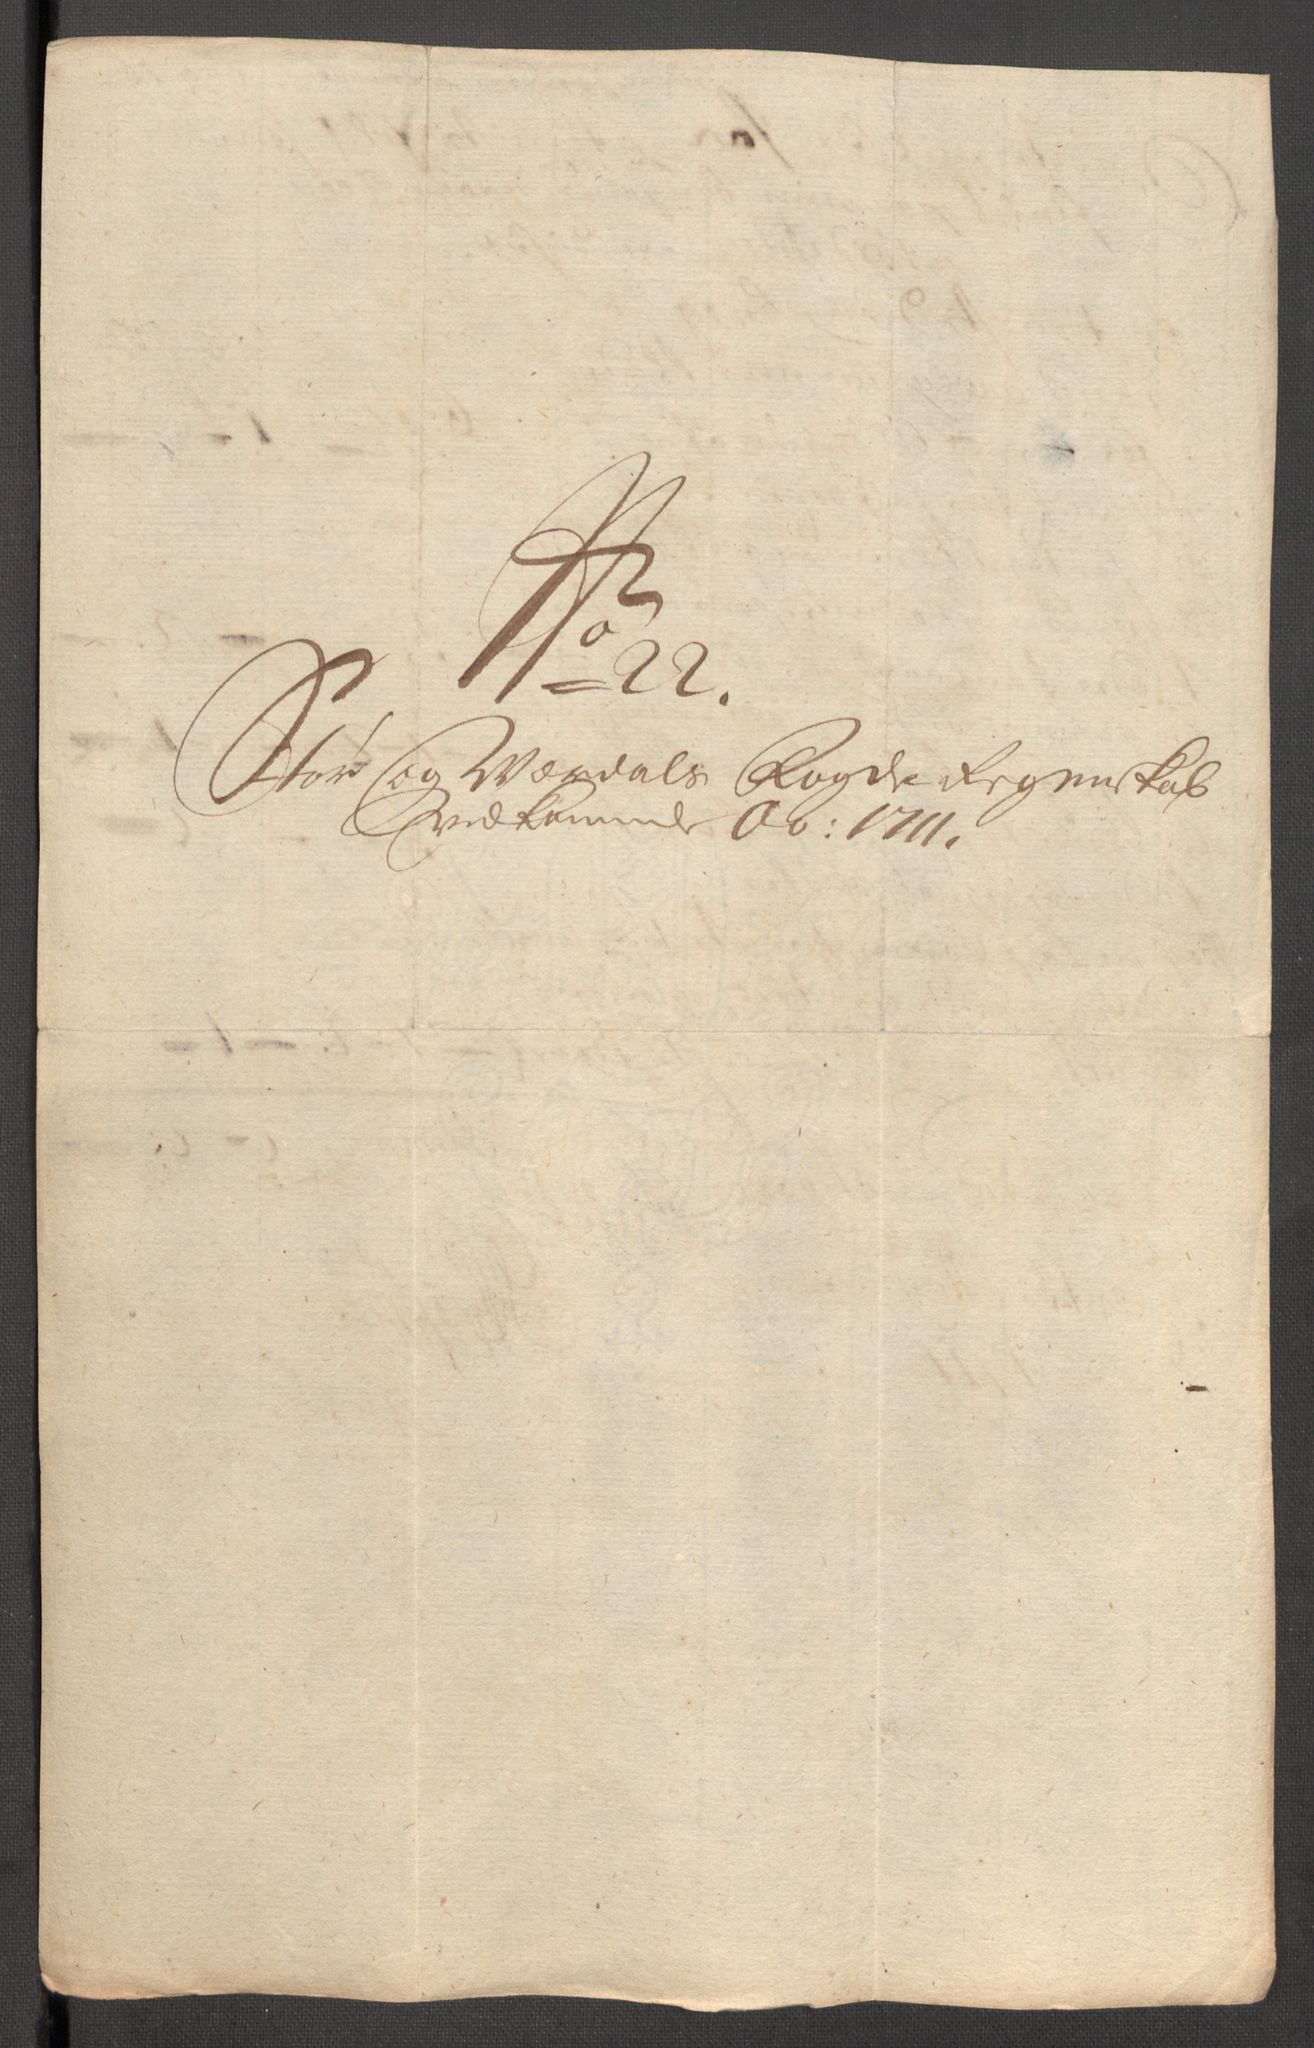 No
22.
Stør og Værdals Fogde Regenskab
vedkommende Ao: 1711.